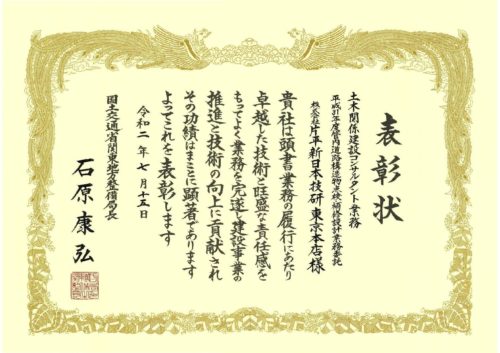 表彰状
土木関係建設コンサルタント業務
平成31年度管内道路構造物点検補修設計業務委託
株式会社片平新日本技研 東京本店 様
貴社は頭書業務の履行にあたり
卓越した技術と旺盛な責任感を
もってよく業務を完遂し建設事業の
推進と技術の向上に貢献され
その功績はまことに顕著であります
よってこれを表彰します
令和二年七月十五日
国土交通省関東地方整備局長
石原康弘